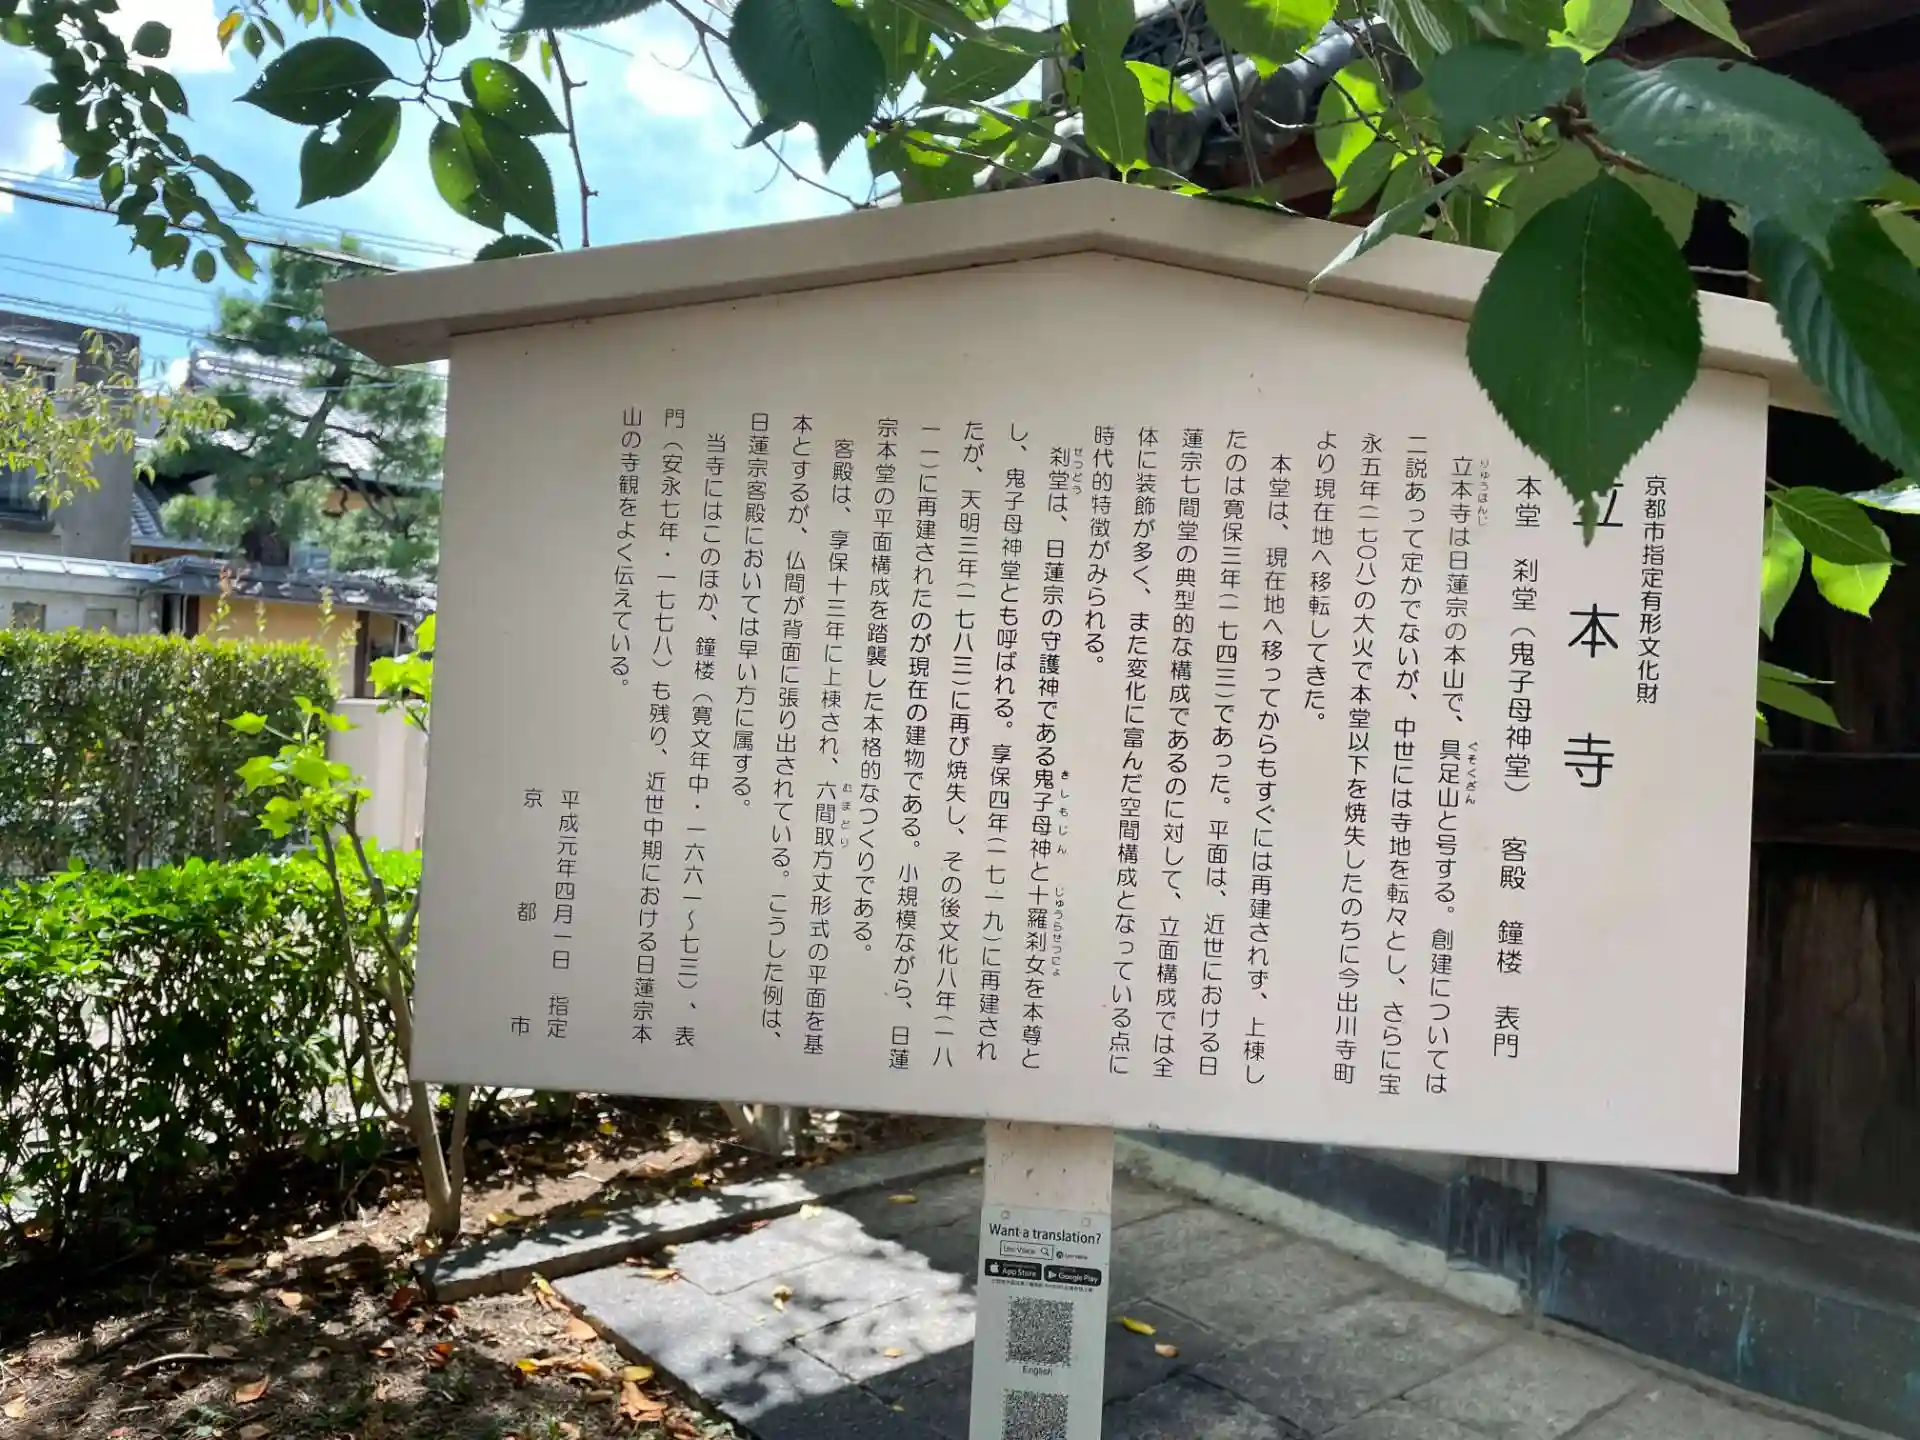 京都市指定有形文化財
立本寺
本堂　刹堂（鬼子母神堂）　客殿　鐘楼　表門
立本寺は日蓮宗の本山で、具足山と号する。創建については
りゅうほんじ
ぐそくざん
二説あって定かでないが、中世には寺地を転々とし、さらに宝
永五年（一七〇八）の大火で本堂以下を焼失したのちに今出川寺町
より現在地へ移転してきた。
本堂は、現在地へ移ってからもすぐには再建されず、上棟し
たのは寛保三年（一七四三）であった。平面は、近世における日
蓮宗七間堂の典型的な構成であるのに対して、立面構成では全
体に装飾が多く、また変化に富んだ空間構成となっている点に
時代的特徴がみられる。
刹堂は、日蓮宗の守護神である鬼子母神と十羅刹女を本尊と
せつどう
きしもじん
じゅうらせつにょ
し、鬼子母神堂とも呼ばれる。享保四年（一七一九）に再建され
たが、天明三年（一七八三）に再び焼失し、その後文化八年（一八
一一）に再建されたのが現在の建物である。小規模ながら、日蓮
宗本堂の平面構成を踏襲した本格的なつくりである。
客殿は、享保十三年に上棟され、六間取方丈形式の平面を基
むまどり
本とするが、仏間が背面に張り出されている。こうした例は、
日蓮宗客殿においては早い方に属する。
当寺にはこのほか、鐘楼（寛文年中・一六六一〜七三）、表
門（安永七年・一七七八）も残り、近世中期における日蓮宗本
山の寺観をよく伝えている。
平成元年四月一日　指定
京都市
Want a translation?
Uni-Voice
App Store
Google Play
English